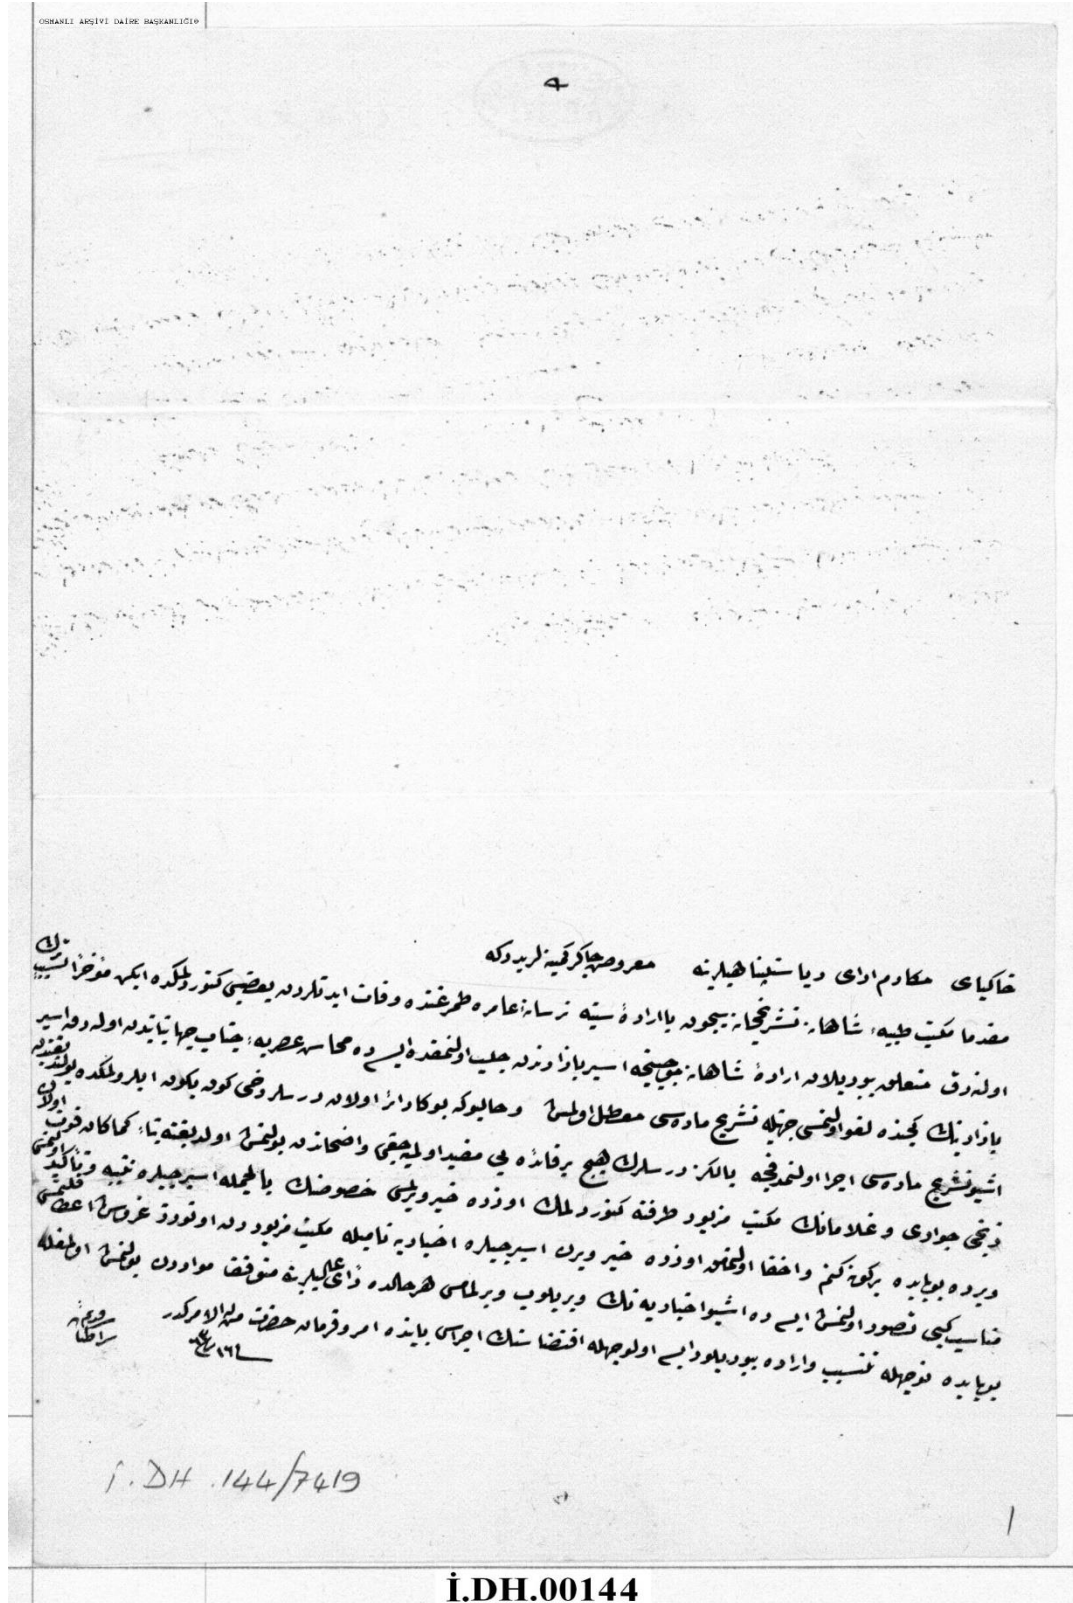 OSMANLI ARŞİVİ DAİRE BAŞKANLIĞI
خاكپاى مكارم اداى رياستپناهيلرينه معروض چاكر كمينه لريدر كه
مقدما مكتب طبيهٔ شاهانه تشريحخانه سيچون با ارادهٔ سنيه ترسانهٔ عامره طمرغنده وفات ايدنلردن بعضيسى كتورلمكده ايكن مؤخرا
اولنه رق متعلق بيوريلان ارادهٔ شاهانه موجبنجه اسير بازارندن جلب اولنمقده ايسه ده محاسن عصريهٔ جناب جهانبانيدن اوله رق اسير
بازارينك كچنده لغو اولنمسى جهتيله تشريح ماده سى معطل اولمش وحالبوكه بوكا دائر اولان درسلر دخى كون بكون ايلرولمكده
اشبو تشريح ماده سى اجرا اولنمدقجه يالكز درسلرك هيچ بر فائده يى مفيد اوله ميه جغى واضحاتدن بولنمش اولديغنه بناءً كماكان فوت اولان
زنجى جوارى و غلامانك مكتب مزبور طرفنه كتورلمك اوزره خبر ويرلمسى خصوصنك بالجمله اسيرجيلره تنبيه وتأكيد
ويره بوبابده بر كونه كتم واخفا اولنمامق اوزره خبر ويرن اسيرجيلره اخباريه ناميله مكتب مزبوردن اوتوزر غروش اعطا قلنمسى
مناسب كبى تصور اولنمش ايسه ده اشبو اخباريه نك ويريلوب ويرلمامسى هر حالده رأى عاليلرينه متوقف مواددن بولنمش اولمغله
بوبابده نوجهله تنسيب واراده بيوريلور ايسه اولوجهله اقتضاسنك اجراسى بابنده امر وفرمان حضرت من له الامركدر
İ.DH .144/7419
1
İ.DH.00144